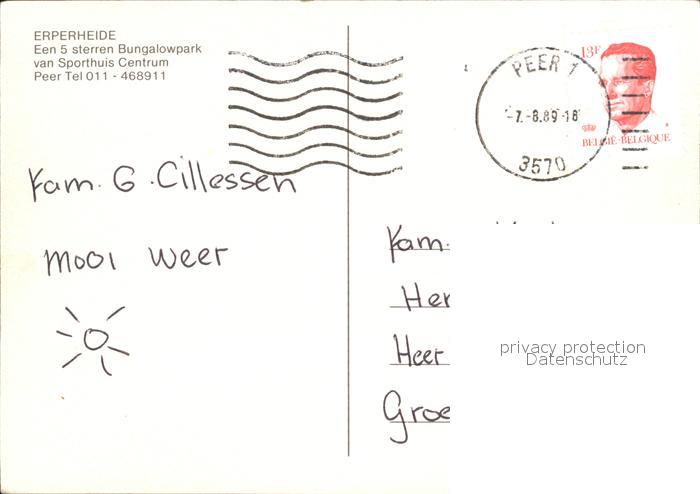 ERPERHEIDE
Een 5 sterren Bungalowpark
van Sporthuis Centrum
Peer Tel 011 - 468911
13F
PEER 1
-7.-8.89-18
3570
BELGIË-BELGIQUE
Fam. G. Cillessen
Mooi weer
Fam.
Her
Heer
Groe
privacy protection
Datenschutz